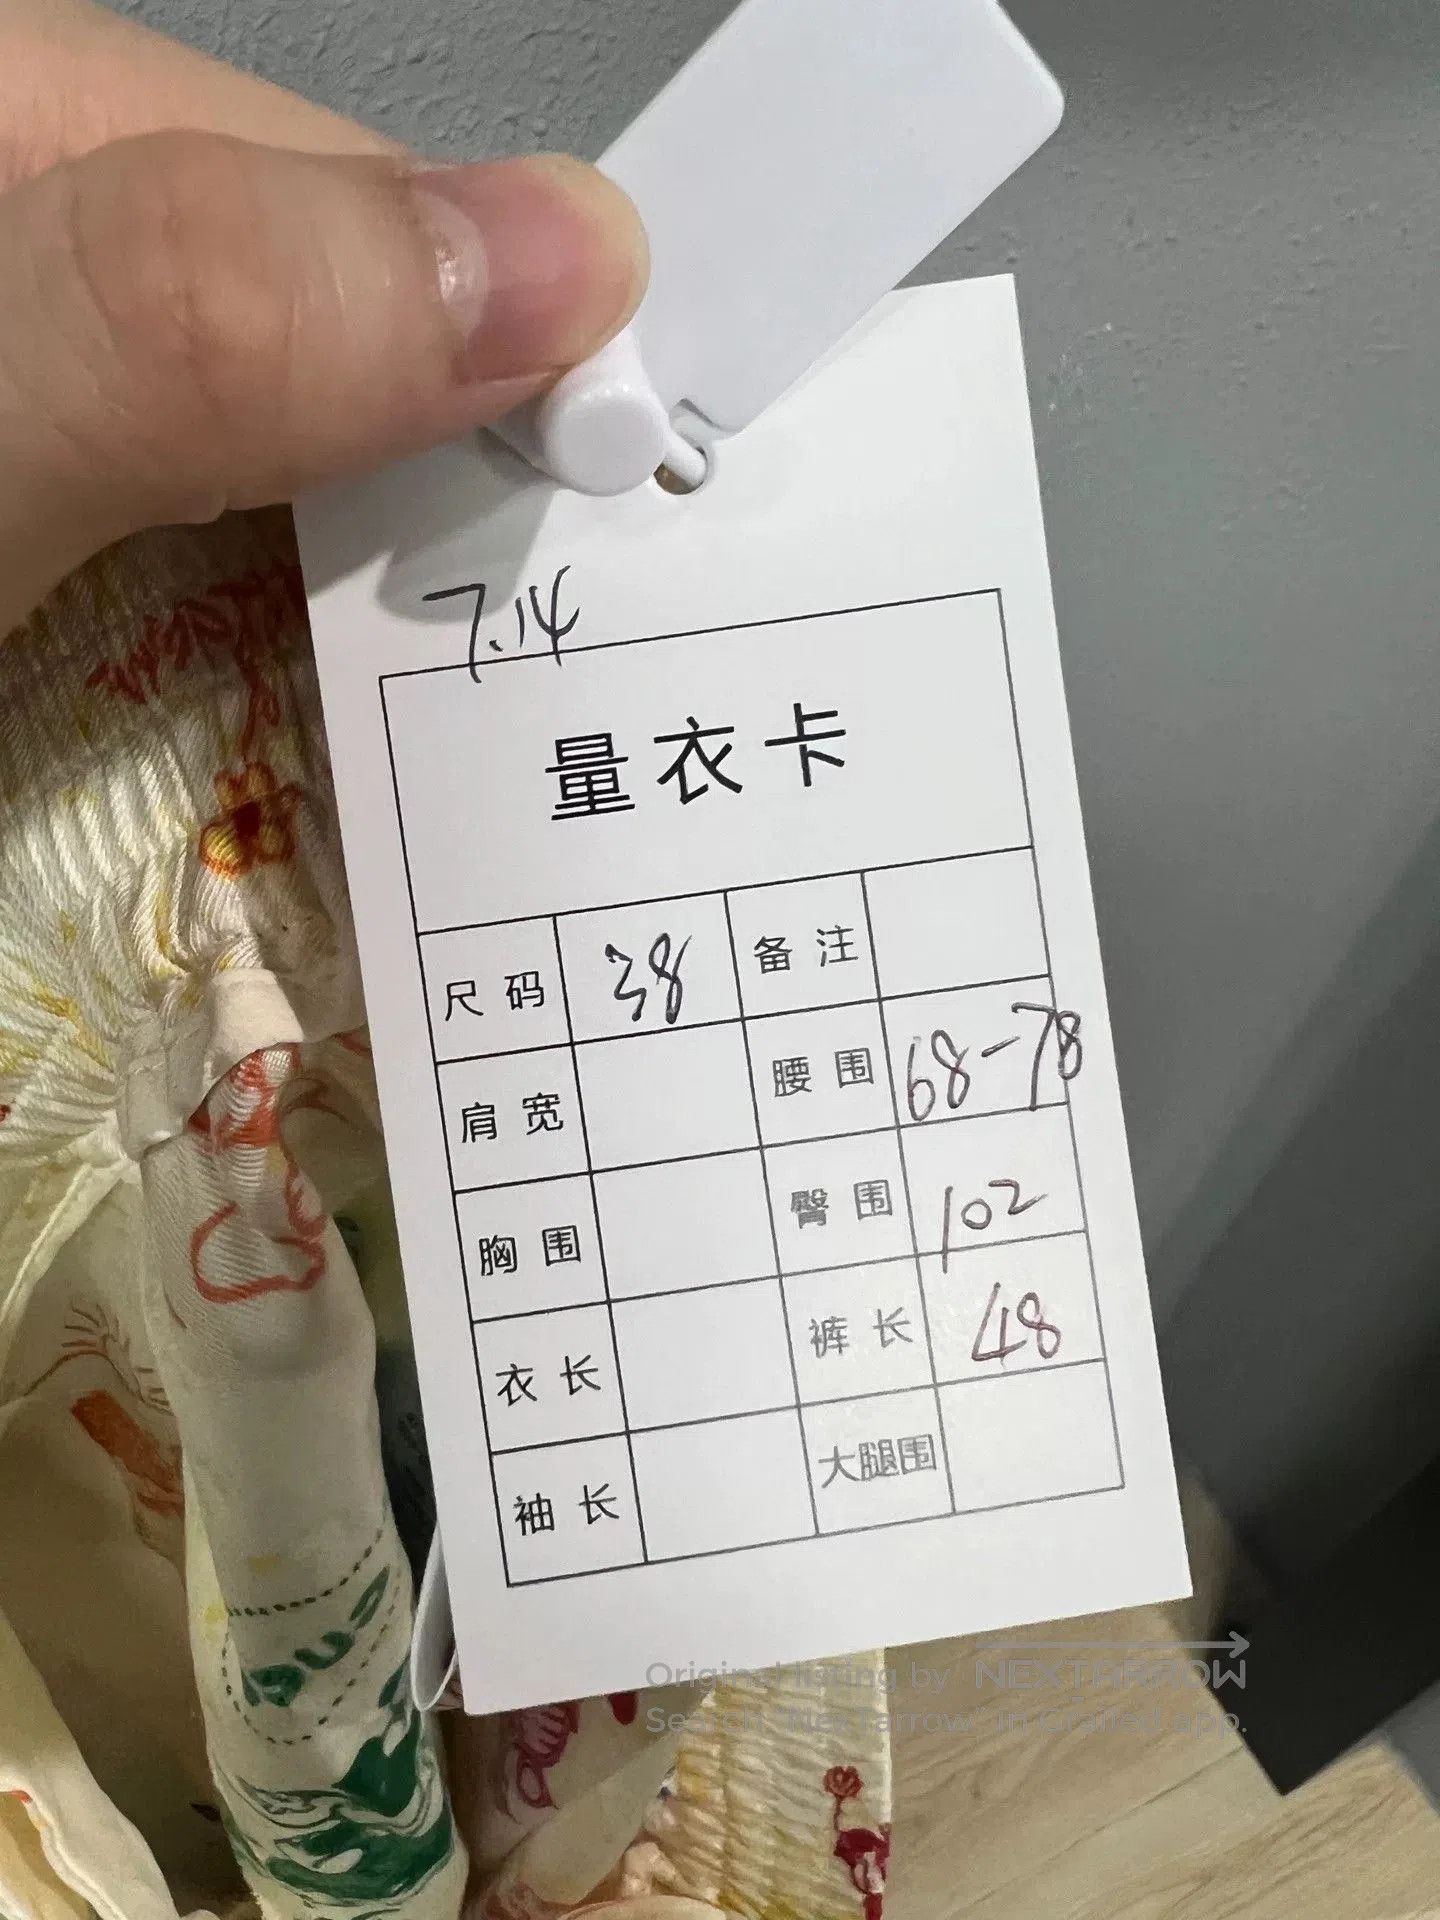 7.14
量衣卡
尺码 38 备注
肩宽 腰围 68-78
胸围 臀围 102
衣长 裤长 48
袖长 大腿围
Original listing by NEXTARROW
Search "NexTarrow" in Grailed app.